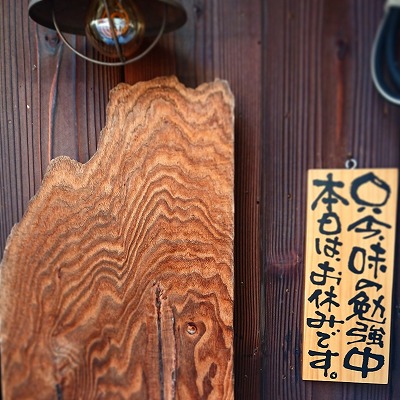 只今味の勉強中
本日は、お休みです。